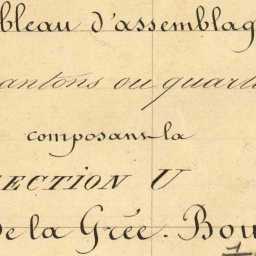 bleau d'assemblag
antons ou quarti
composant la
ECTION U
de la Grée. Bou